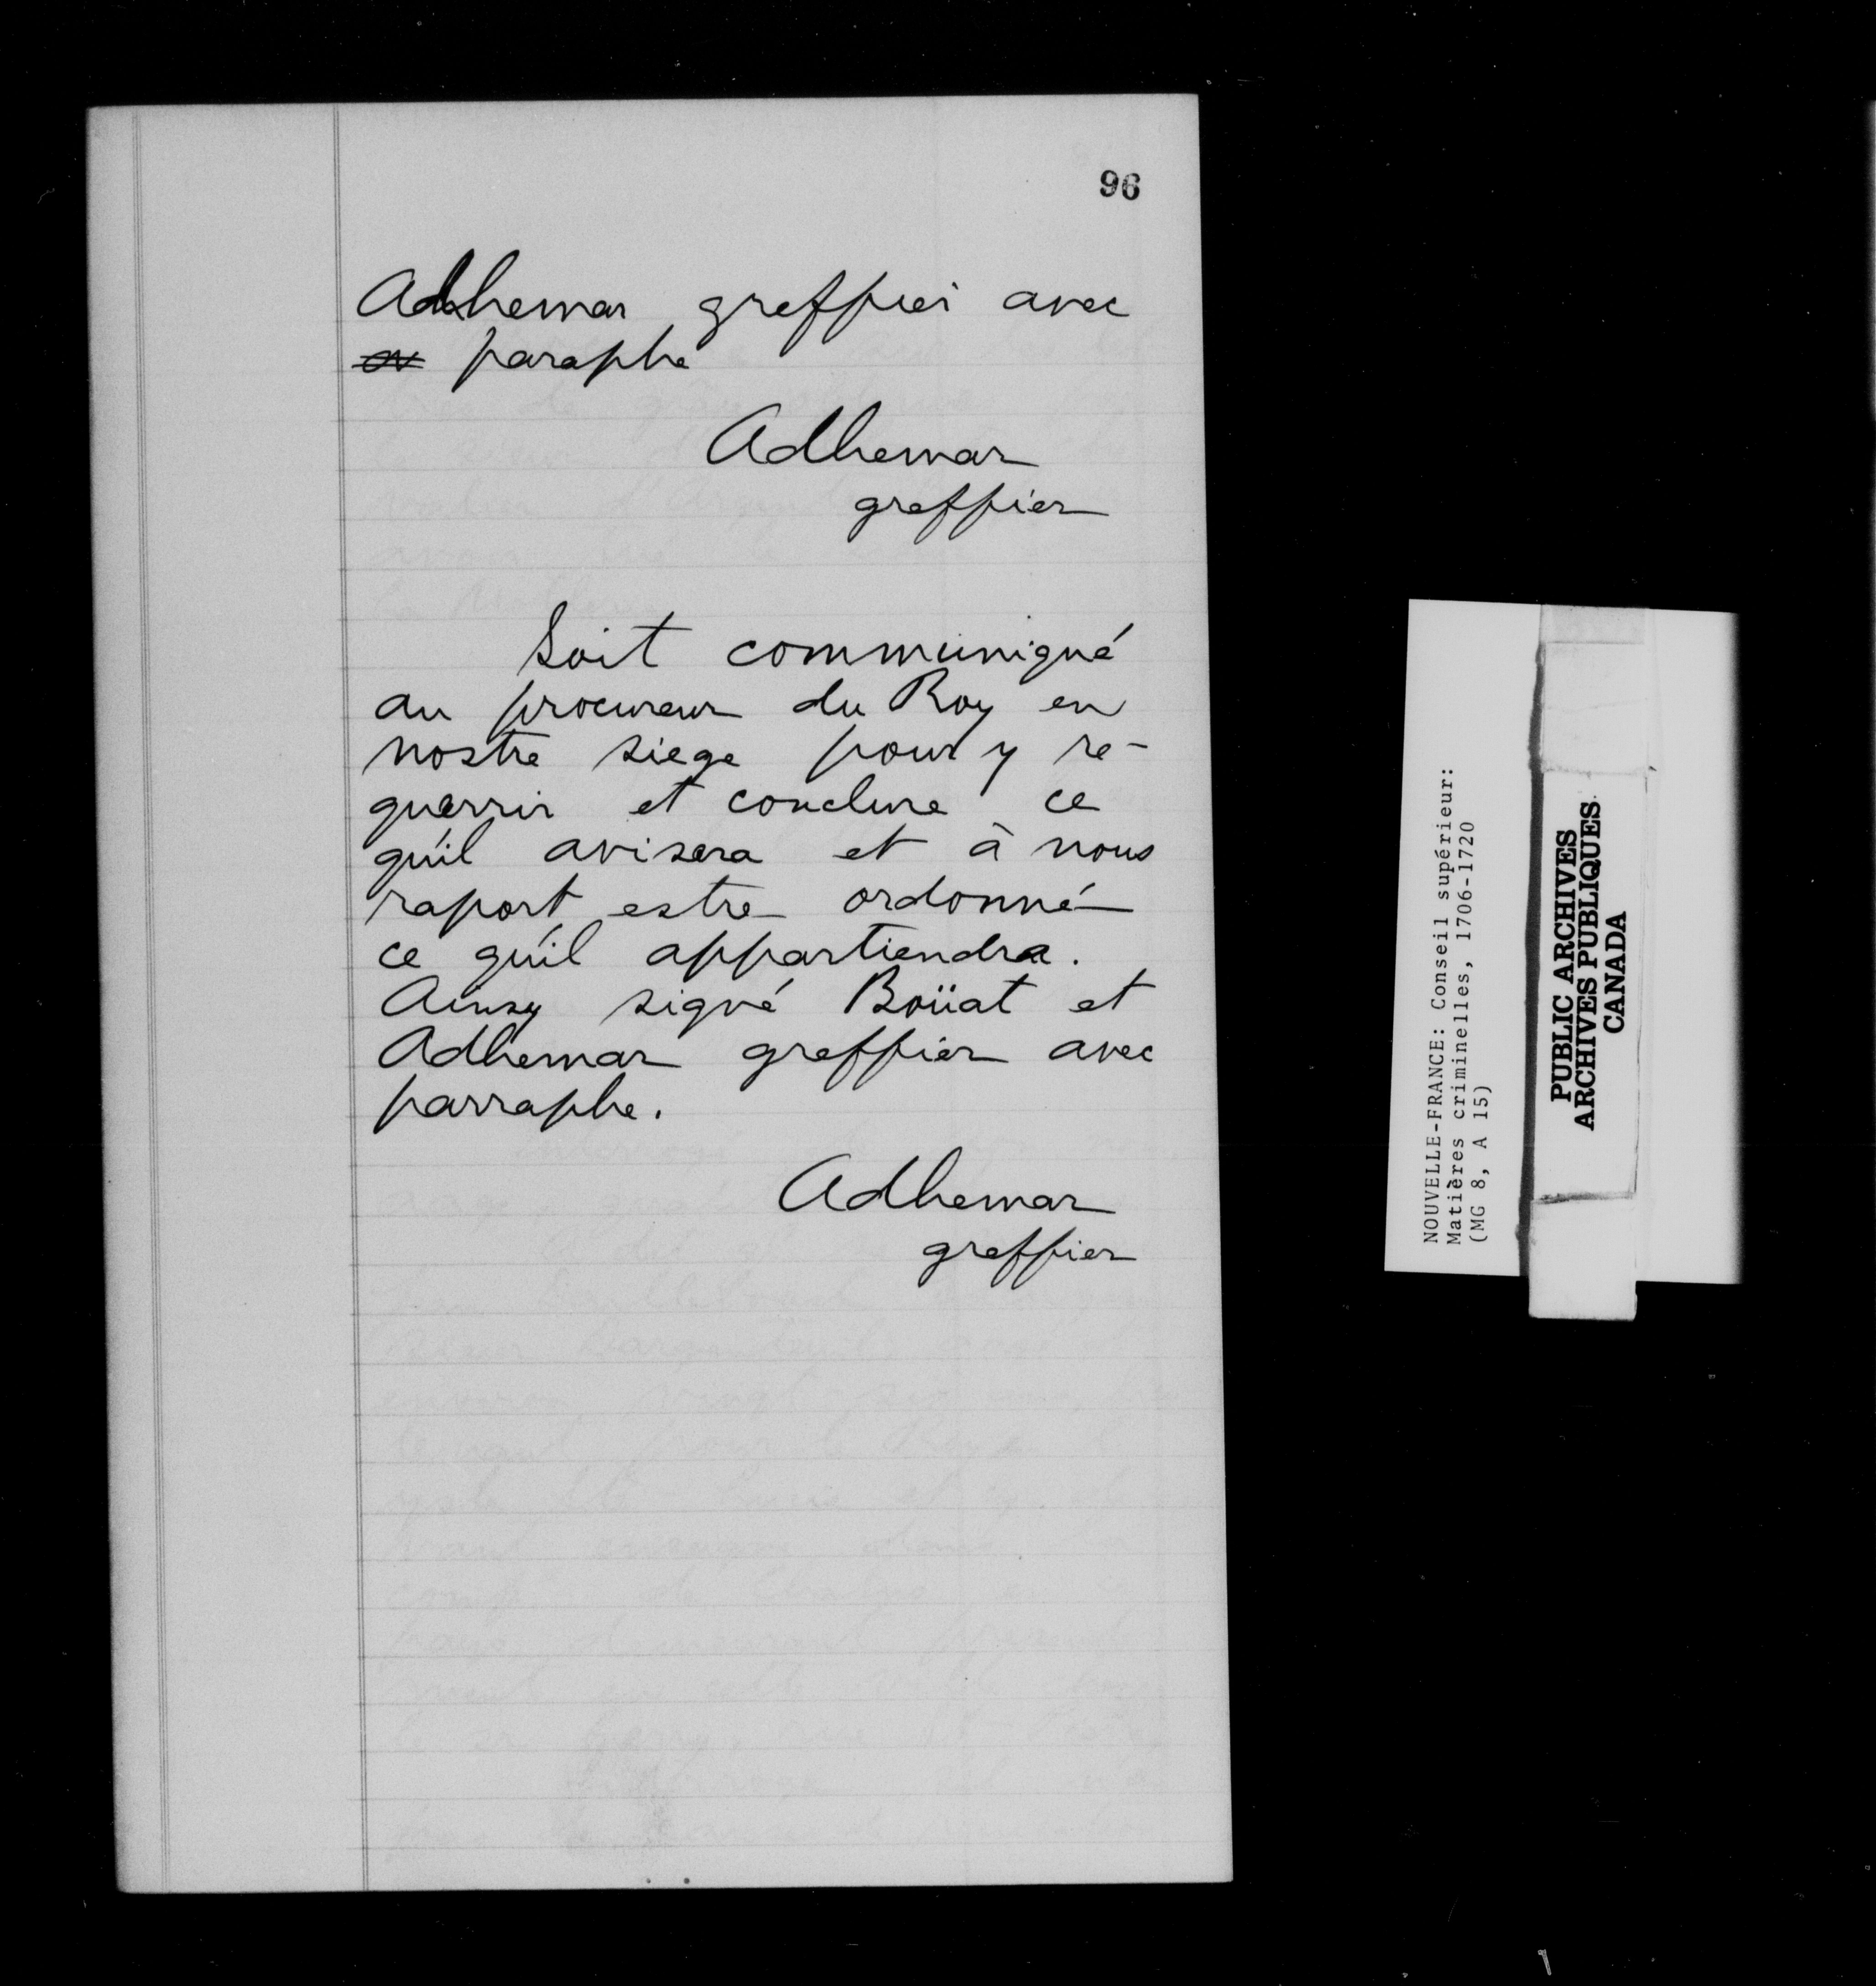 96
Adhemar greffier avec
paraphe
Adhemar
greffier
Soit communiqué
au procureur du Roy en
nostre siege pour y re-
querrir et conclure ce
qu'il avisera et à nous
raport estre ordonné
ce qu'il appartiendra.
Ainsy signé Boüat et
Adhemar greffier avec
parraphe.
Adhemar
greffier
NOUVELLE-FRANCE: Conseil supérieur:
Matières criminelles, 1706-1720
(MG 8, A 15)
PUBLIC ARCHIVES
ARCHIVES PUBLIQUES
CANADA